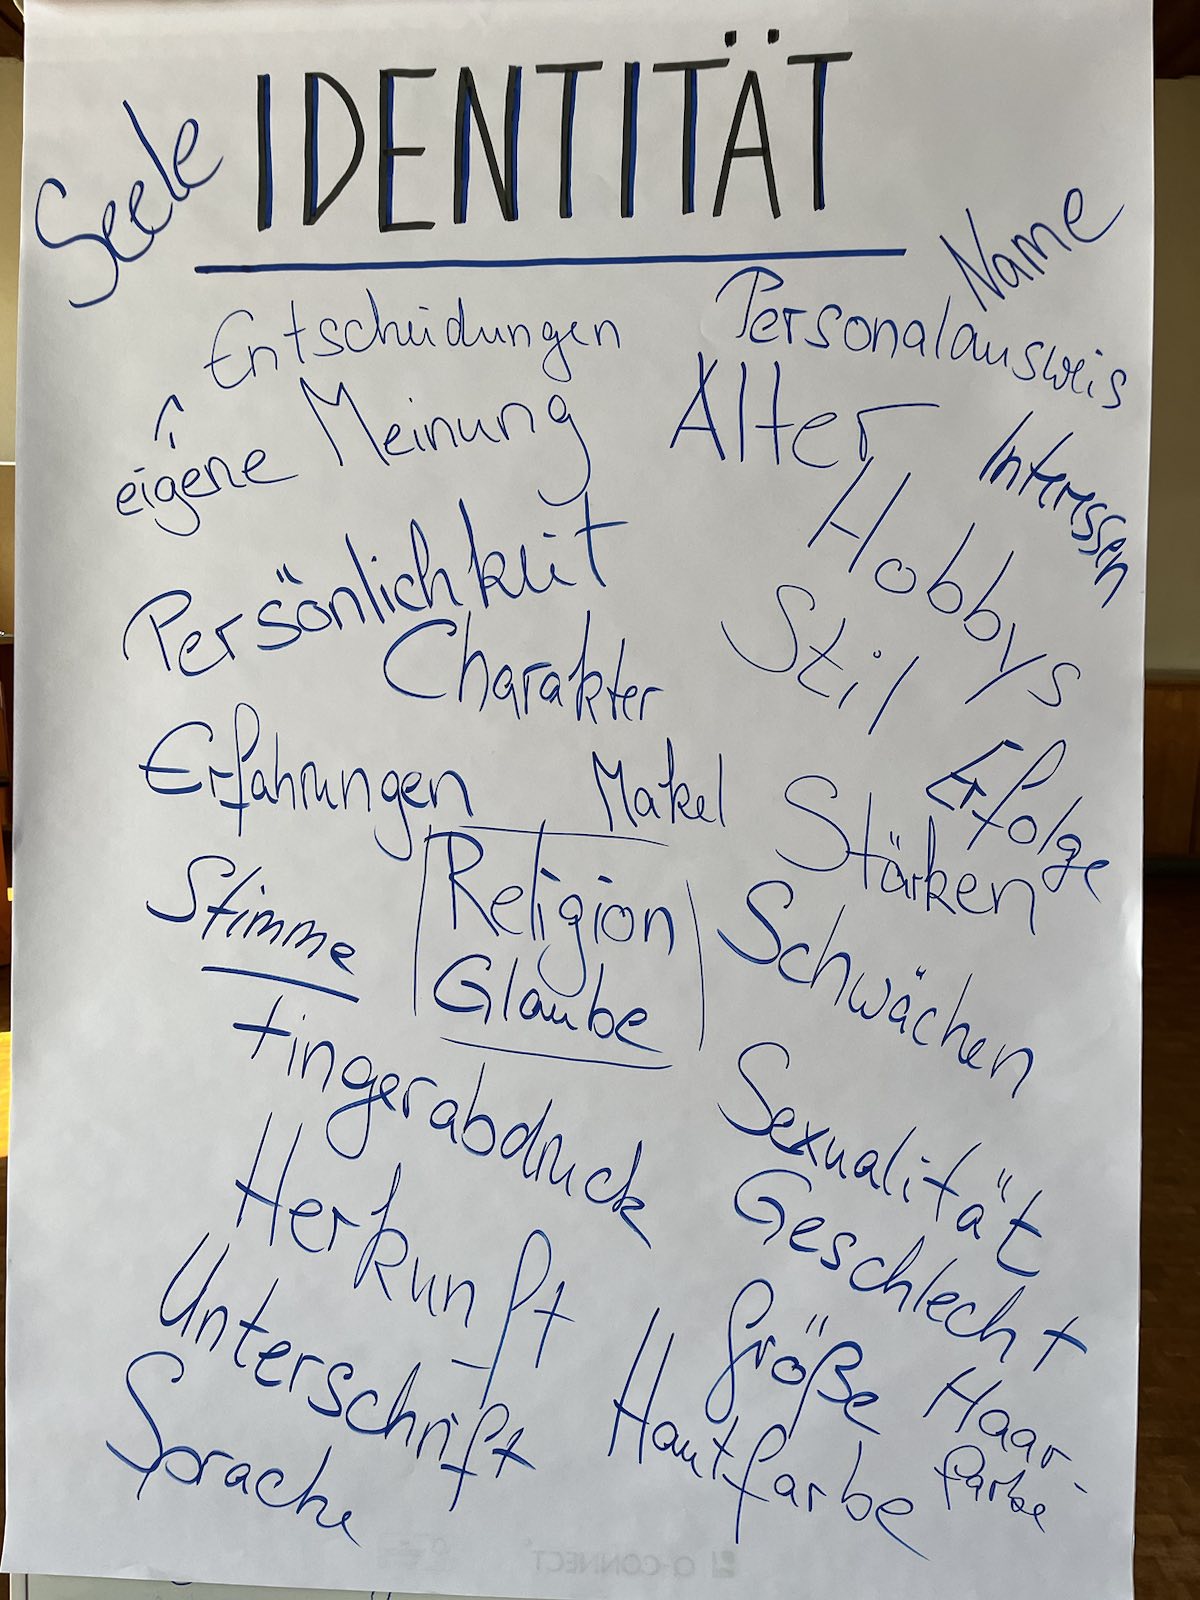 IDENTITÄT
Seele
Name
Entscheidungen
Personalausweis
eigene Meinung
Alter
Interessen
Hobbys
Persönlichkeit
Charakter
Stil
Erfahrungen
Makel
Erfolge
Stärken
Stimme
Religion
Glaube
Schwächen
Fingerabdruck
Sexualität
Herkunft
Geschlecht
Unterschrift
Größe
Haar-
farbe
Hautfarbe
Sprache
Q-CONNECT